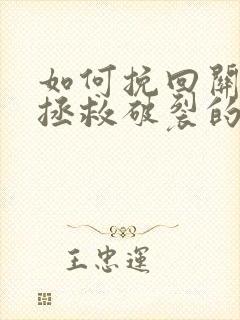 如何挽回關
拯救破裂的
王忠運